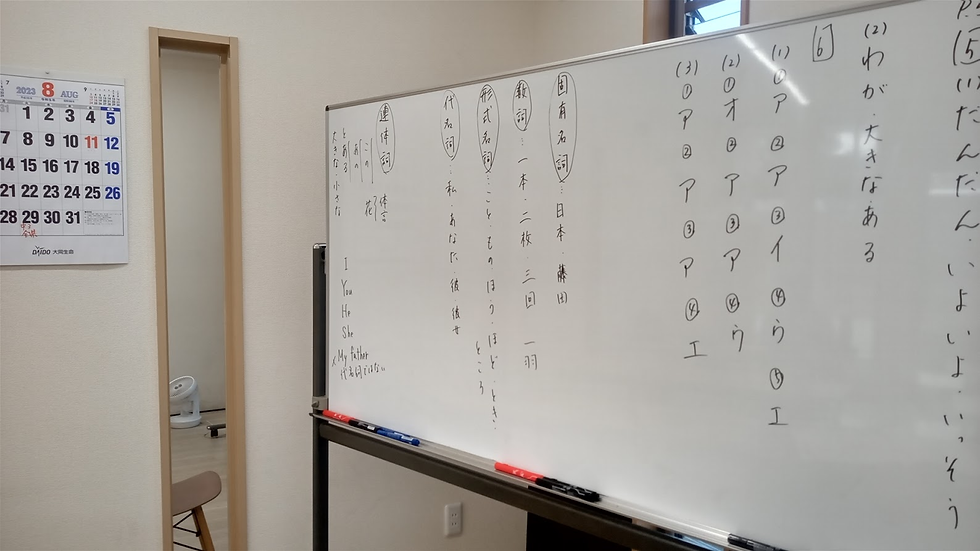 P.
5 だんだん、いよいよ、いっそう
(2) わが、大きな、ある
6
(1) ① ア ② ア ③ イ ④ ウ ⑤ エ
(2) ① オ ② ア ③ ア ④ ウ
(3) ① ア ② ア ③ ア ④ エ
固有名詞…日本・藤田
数詞…一本・二枚・三回 一羽
形式名詞…こと・もの・ほう・ほど・とき・
ところ
代名詞…私・あなた・彼・彼女
I
You
He
She
× My father
代名詞ではない
連体詞
体言
この
あの
花
とある
大きな・小さな
7
2023
8
AUG
9
31 1 2 3 4 5
7 8 9 10 11 12
14 15 16 17 18 19
21 22 23 24 25 26
28 29 30 31
DAIDO 大同生命